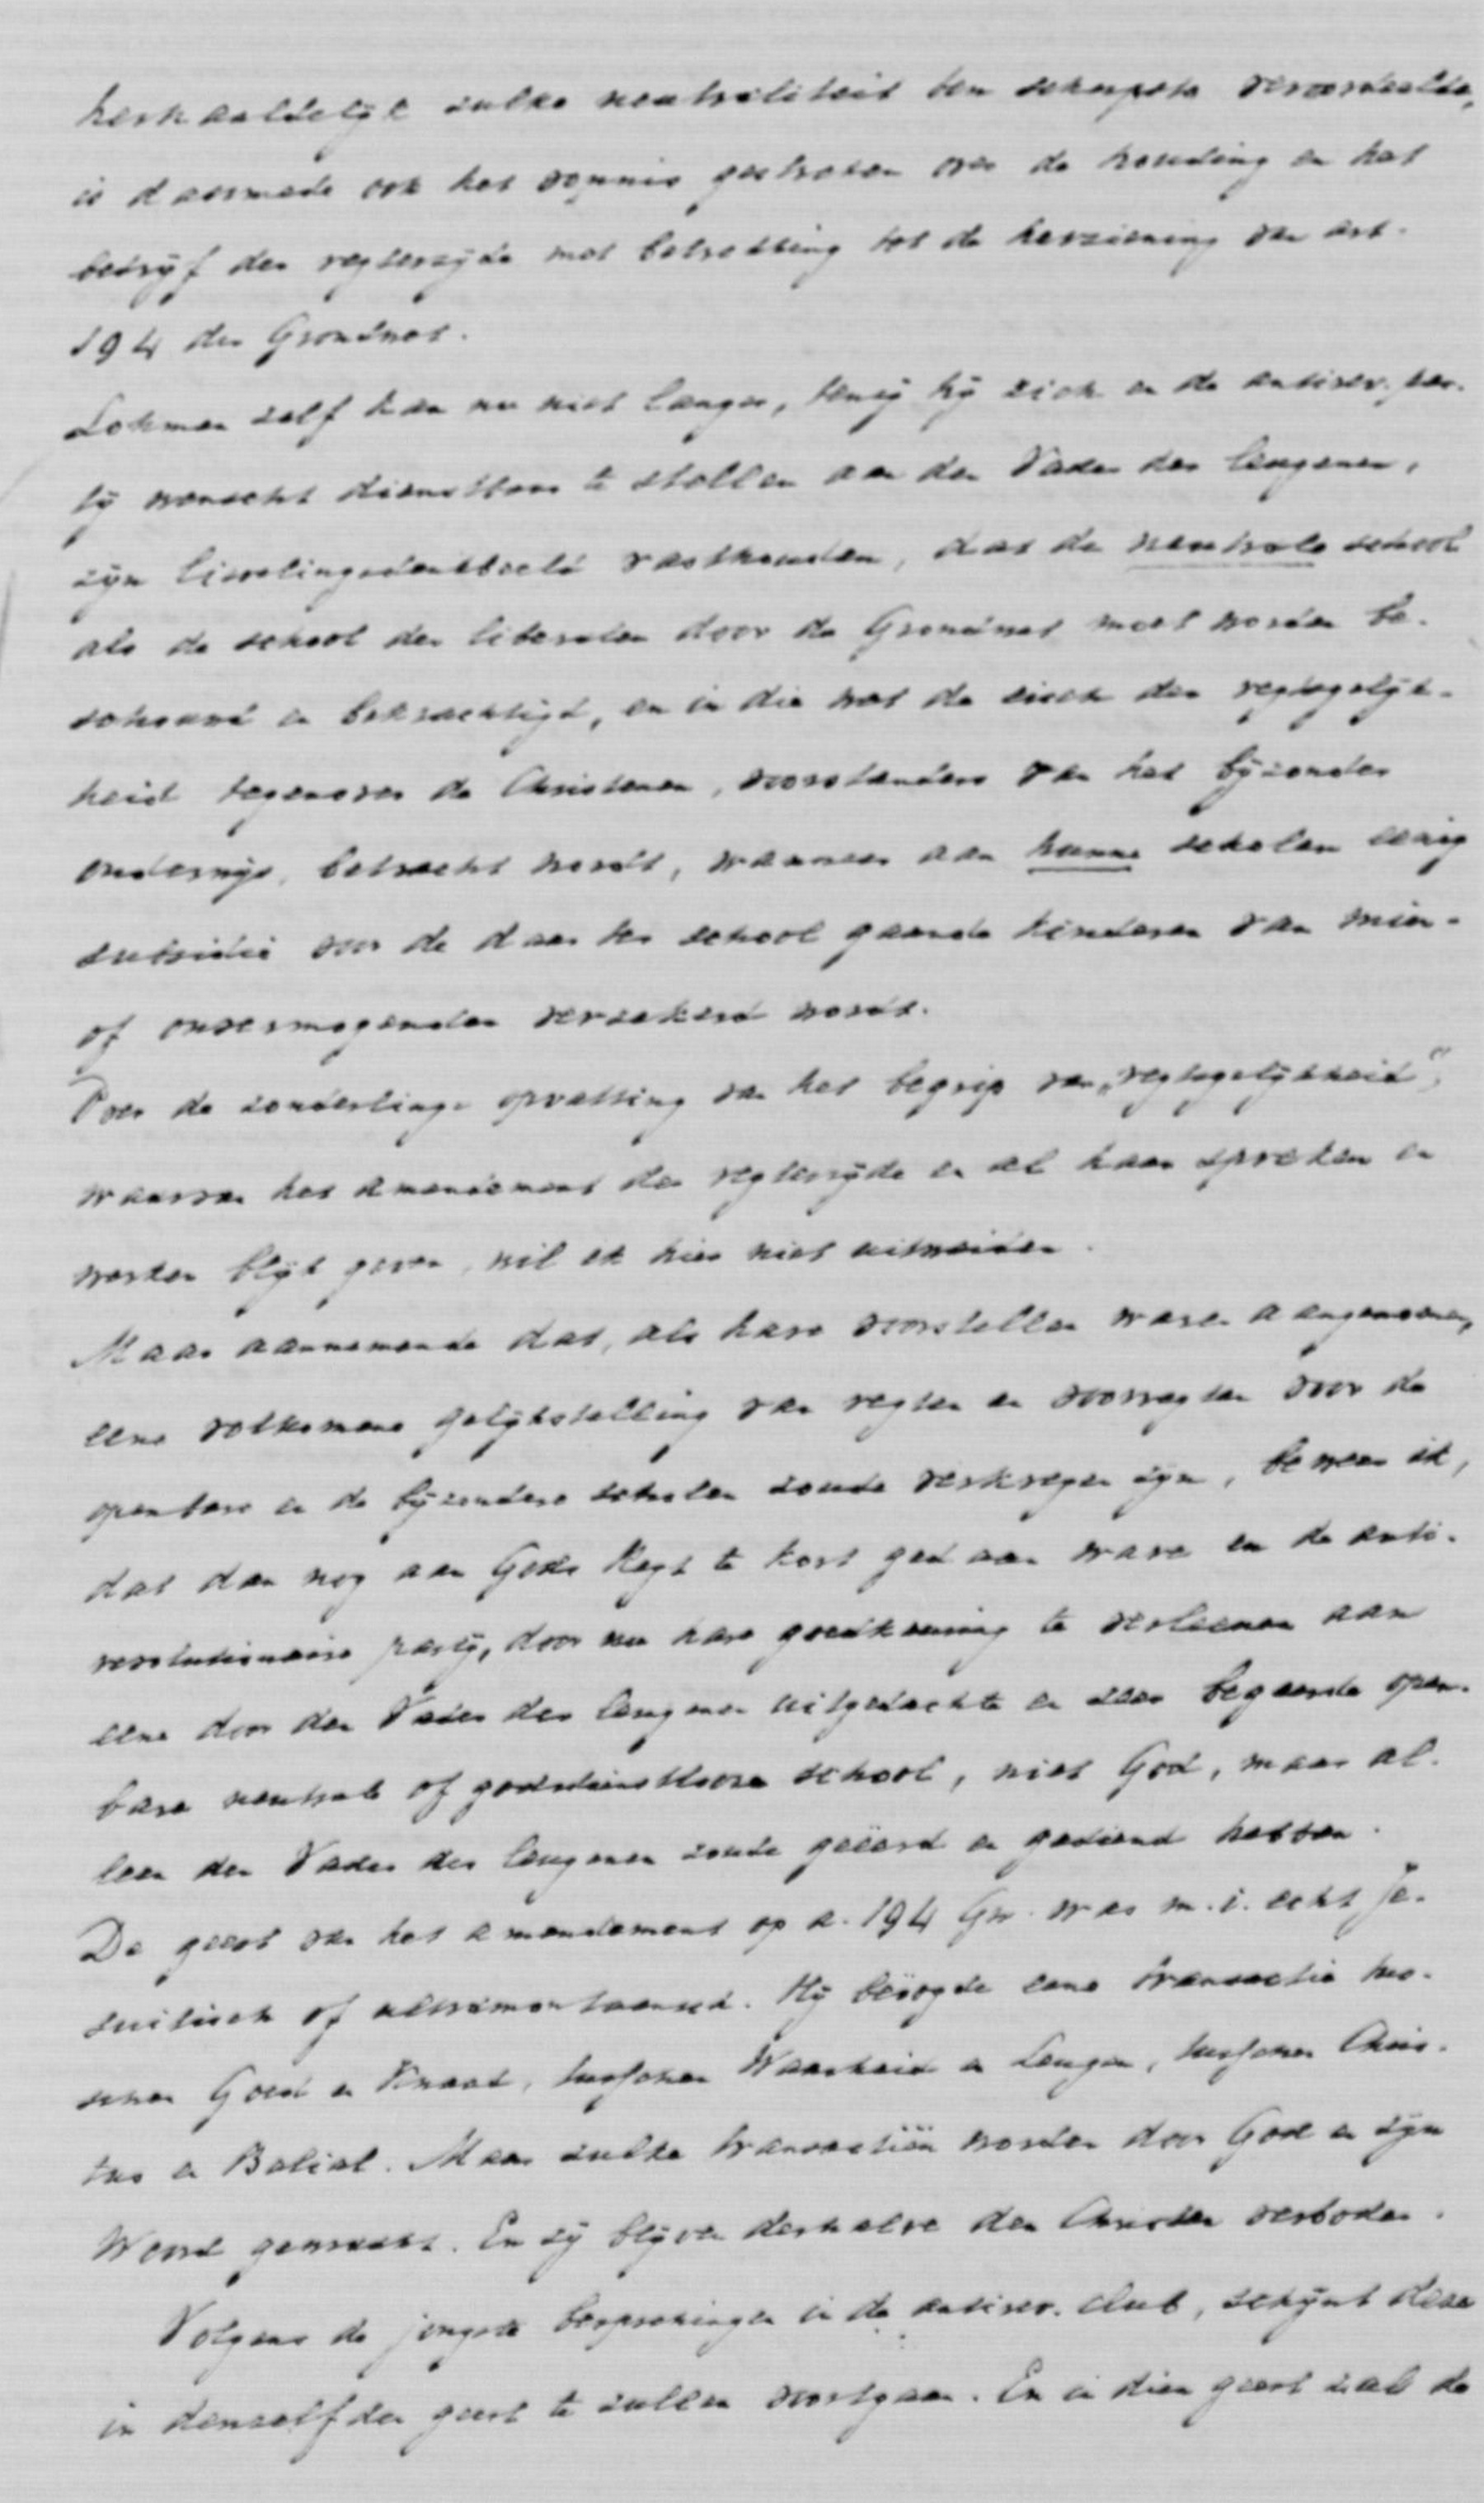 herhaaldelijk zulke neutraliteit ten scherpste veroordeelde,
is daarmede ook het vonnis gestreken over de houding en het
bedrijf der regterzijde met betrekking tot de herziening van art.
194 der Grondwet.
Lohman zelf kan nu niet langer, tenzij hij zich en de antirev. par-
tij wenscht dienstbaar te stellen aan den Vader der leugenen,
zijn lievelingsdenkbeeld vasthouden, dat de neutrale school
als de school der liberalen door de Grondwet moet worden be-
schouwd en bekrachtigd, en in die wet de eisch der regtsgelijk-
heid tegenover de Christenen, voorstanders van het bijzonder
onderwijs, betracht wordt, wanneer aan hunne scholen eenig
subsidie voor de daar ter school gaande kinderen van min-
of onvermogenden verzekerd wordt.
Over de zonderlinge opvatting van het begrip van „regtsgelijkheid",
waarvan het amendement der regterzijde en al haar spreken en
werken blijk geven, wil ik hier niet uitweiden.
Maar aannemende dat, als hare voorstellen waren aangenomen,
eene volkomene gelijkstelling van regten en voorregten voor de
openbare en de bijzondere scholen zoude verkregen zijn, beweer ik,
dat dan nog aan Gods Regt te kort gedaan ware en de anti-
revolutionaire partij, door nu hare goedkeuring te verleenen aan
eene door den Vader der leugenen uitgedachte en zeer begeerde open-
bare neutrale of godsdienstlooze school, niet God, maar al-
leen den Vader der leugenen zoude geëerd en gediend hebben.
De geest van het amendement op a. 194 Gw. was m.i. echt Je-
zuitisch of ultramontaansch. Hij beoogde eene transactie tus-
schen Goed en Kwaad, tusschen Waarheid en Leugen, tusschen Chris-
tus en Belial. Maar zulke transactiën worden door God en zijn
Woord gewraakt. En zij blijven derhalve den Christen verboden.
Volgens de jongste besprekingen in de antirev. club, schijnt deze
in denzelfden geest te zullen voortgaan. En in dien geest zal de